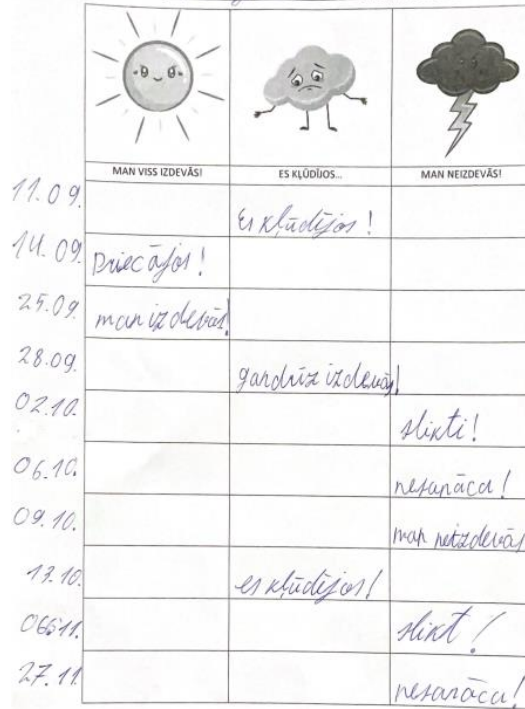 MAN VISS IZDEVĀS! ES KĻŪDĪJOS... MAN NEIZDEVĀS!
11.09. Es kļūdījos!
14.09. Priecājos!
25.09. man izdevās!
28.09. gandrīz izdevās!
02.10. slikti!
06.10. nesanāca!
09.10. man neizdevās
13.10. es kļūdījos!
06.11. slikt!
27.11. nesanāca!